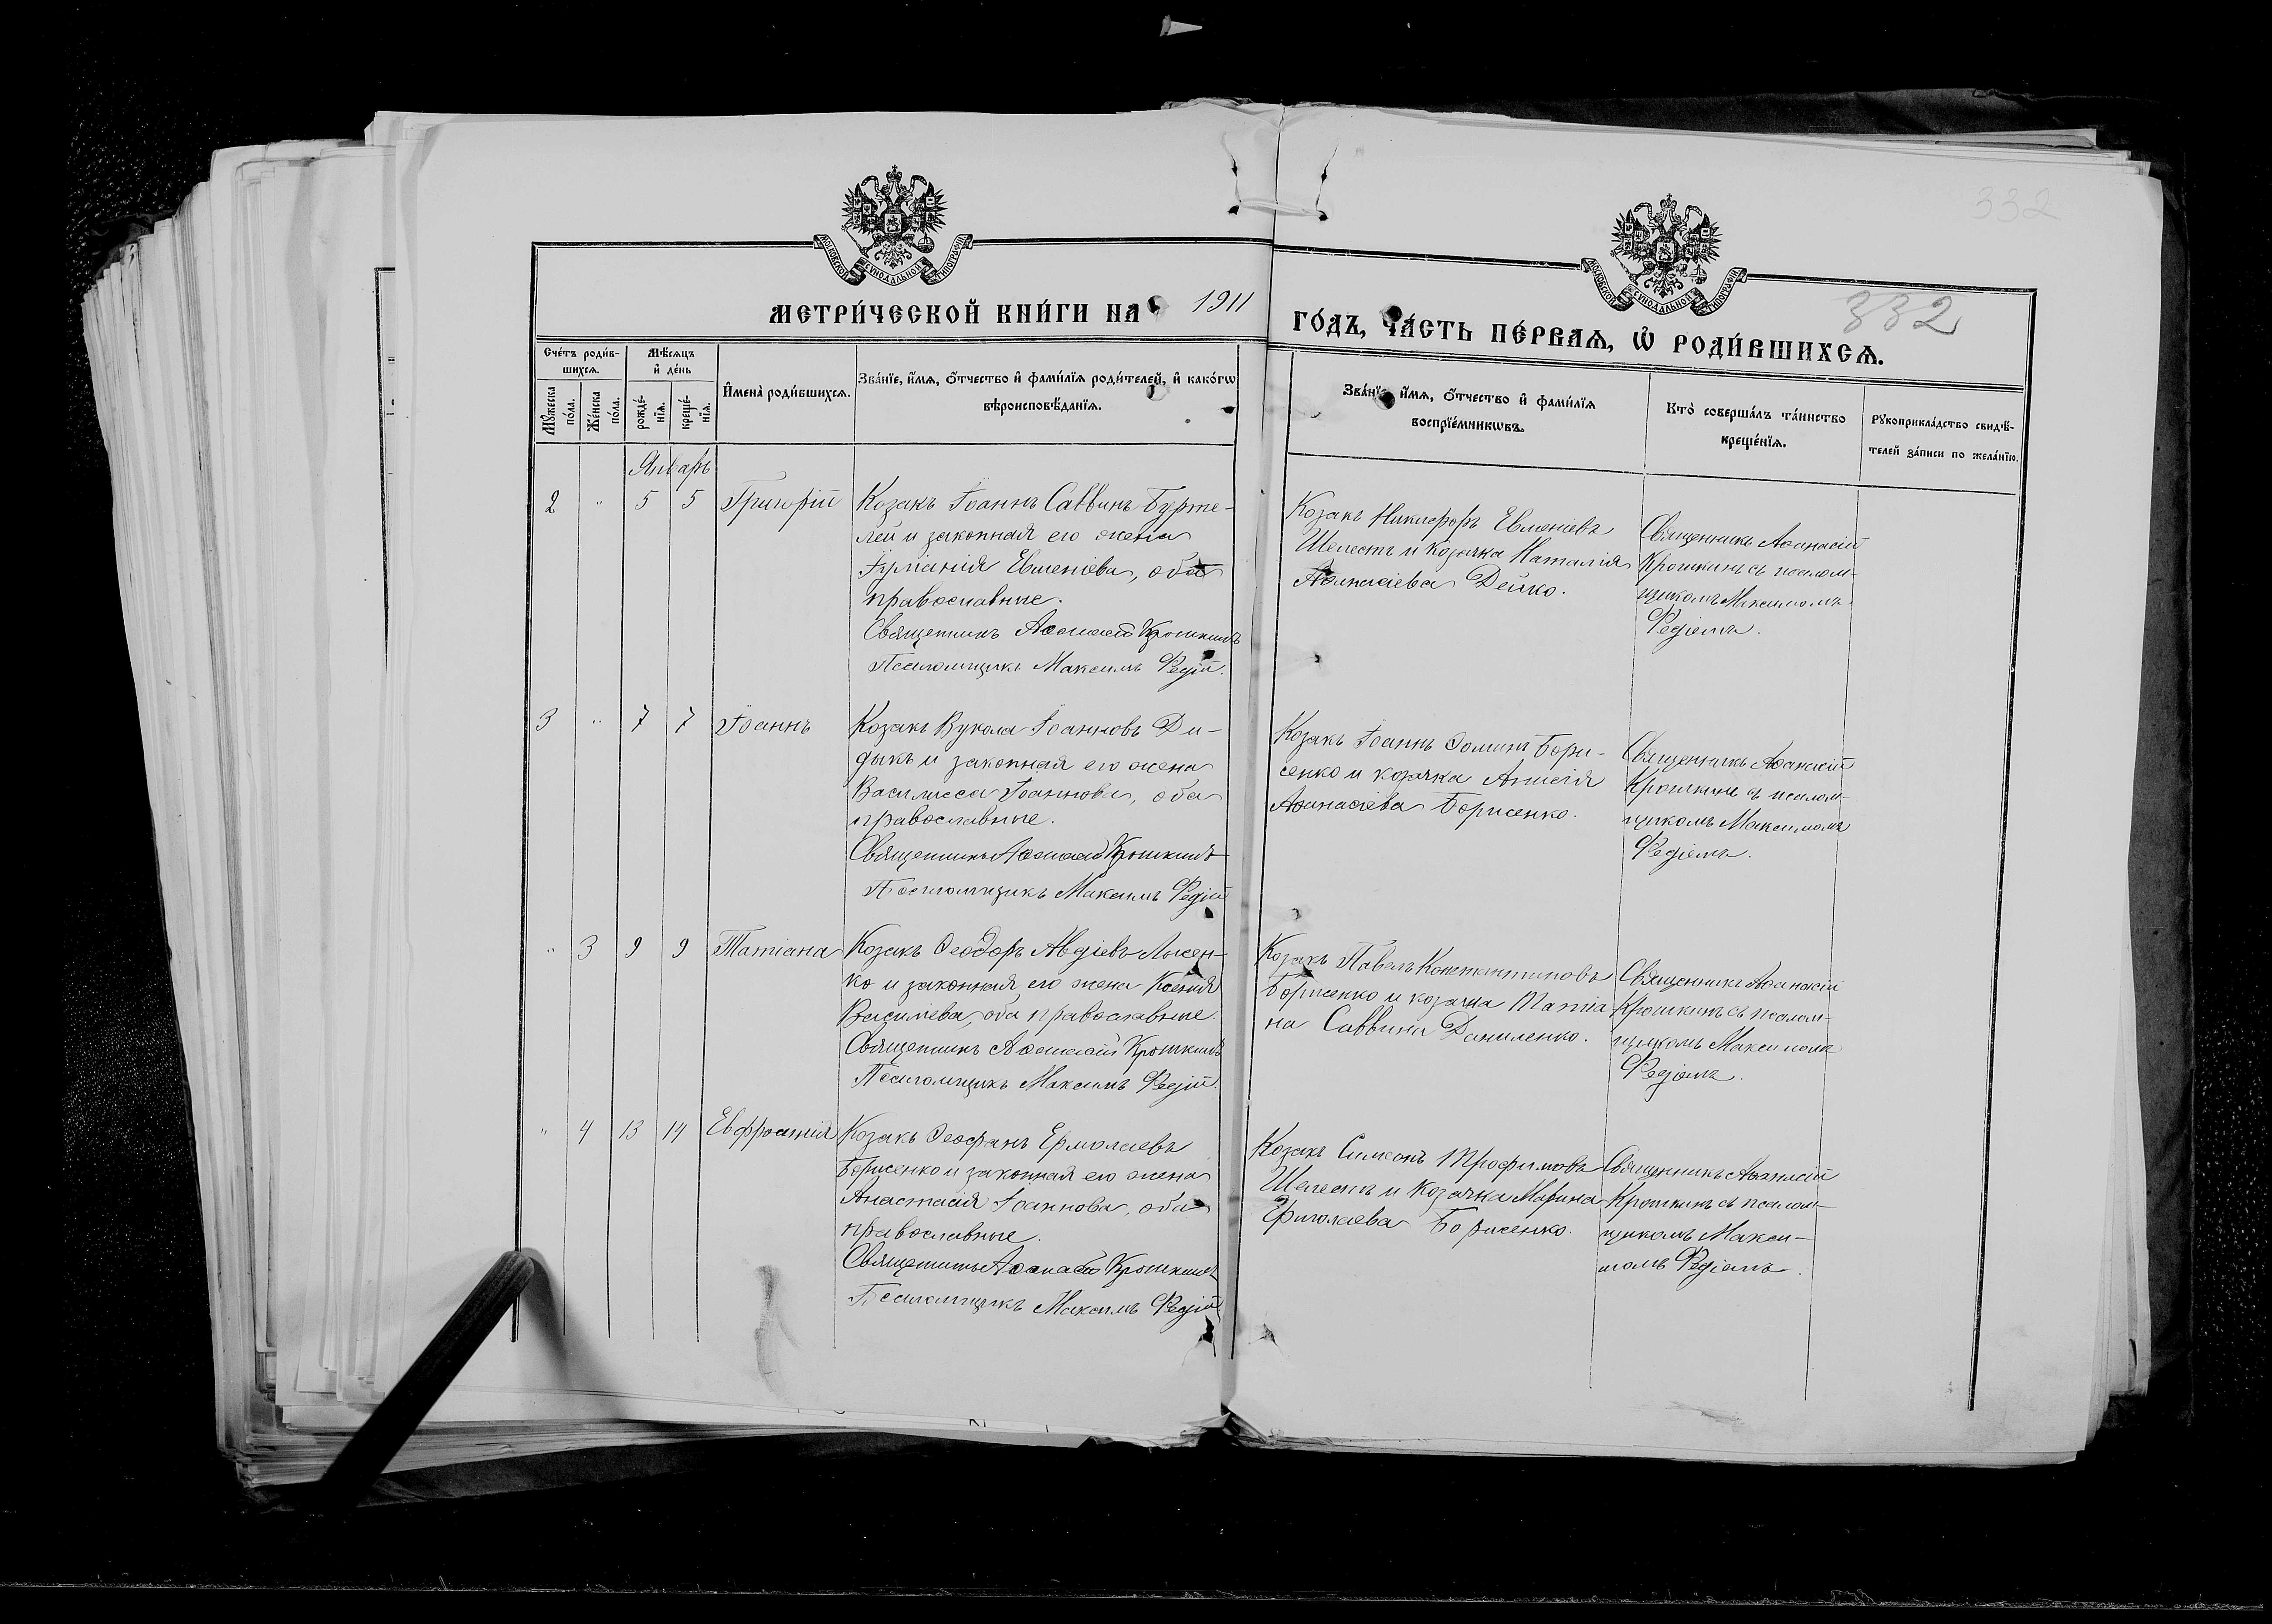 332
МОСКОВСКОЙ СѴНОДАЛЬНОЙ ТИПОГРАФІИ
МОСКОВСКОЙ СѴНОДАЛЬНОЙ ТИПОГРАФІИ
МЕТРИ́ЧЕСКОЙ КНИ́ГИ НА 1911
ГО́ДЪ, ЧА́СТЬ ПЕ́РВАѦ, Ѡ҆ РОДИ́ВШИХСѦ.
332
Сче́тъ роди́в-
шихсѧ.
Мѣ́сѧцъ
и҆ де́нь
Мꙋ́жеска
по́ла.
Же́нска
по́ла.
рожде́-
нїѧ.
креще́-
нїѧ.
И҆мена̀ роди́вшихсѧ.
Зва́нїе, и҆́мѧ, ѻ҆́тчество и҆ фами́лїѧ роди́телей, и҆ како́гѡ
вѣроисповѣ́данїѧ.
Зва́нїе, и҆́мѧ, ѻ҆́тчество и҆ фами́лїѧ
воспрїе́мникѡвъ.
Кто̀ соверша́лъ та́инство
креще́нїѧ.
Рꙋкоприкла́дство свидѣ́-
телей за́писи по жела́нїю.
Январь
2 " 5 5 Григорій
Козакъ Іоаннъ Саввинъ Бурме-
лей и законная его жена
Евменіева, оба
православные.
Священникъ Аѳанасій Крошкинъ
Псаломщикъ Максимъ Редій.
Козакъ Никифоръ Евменіевъ
Шелестъ и козачка Наталія
Аѳанасіева Дейко.
Священникъ Аѳанасій
Крошкинъ съ псалом-
щикомъ Максимомъ
Редіемъ.
3 " 7 7 Іоаннъ
Козакъ Вукола Іоанновъ Ди-
дыкъ и законная его жена
Василисса Іоаннова, оба
православные.
Священникъ Аѳанасій Крошкинъ
Псаломщикъ Максимъ Редій
Козакъ Іоаннъ Ѳоминъ Бори-
сенко и козачка Анисія
Аѳанасіева Борисенко.
Священникъ Аѳанасій
Крошкинъ съ псалом-
щикомъ Максимомъ
Редіемъ.
" 3 9 9 Татіана
Козакъ Ѳеодоръ Авдіевъ Лысен-
ко и законная его жена Ксенія
Василіева, оба православные.
Священникъ Аѳанасій Крошкинъ
Псаломщикъ Максимъ Редій.
Козакъ Павелъ Константиновъ
Борисенко и козачка Татіа
на Саввина Даниленко.
Священникъ Аѳанасій
Крошкинъ съ псалом-
щикомъ Максимомъ
Редіемъ.
" 4 13 14 Евфросинія
Козакъ Ѳеофанъ Ермолаевъ
Борисенко и законная его жена
Анастасія Іоаннова, оба
православные.
Священникъ Аѳанасій Крошкинъ
Псаломщикъ Максимъ Редій
Козакъ Симеонъ Трофимовъ
Шелестъ и козачка Марина
Ермолаева Борисенко.
Священникъ Аѳанасій
Крошкинъ съ псалом-
щикомъ Макси-
момъ Редіемъ.